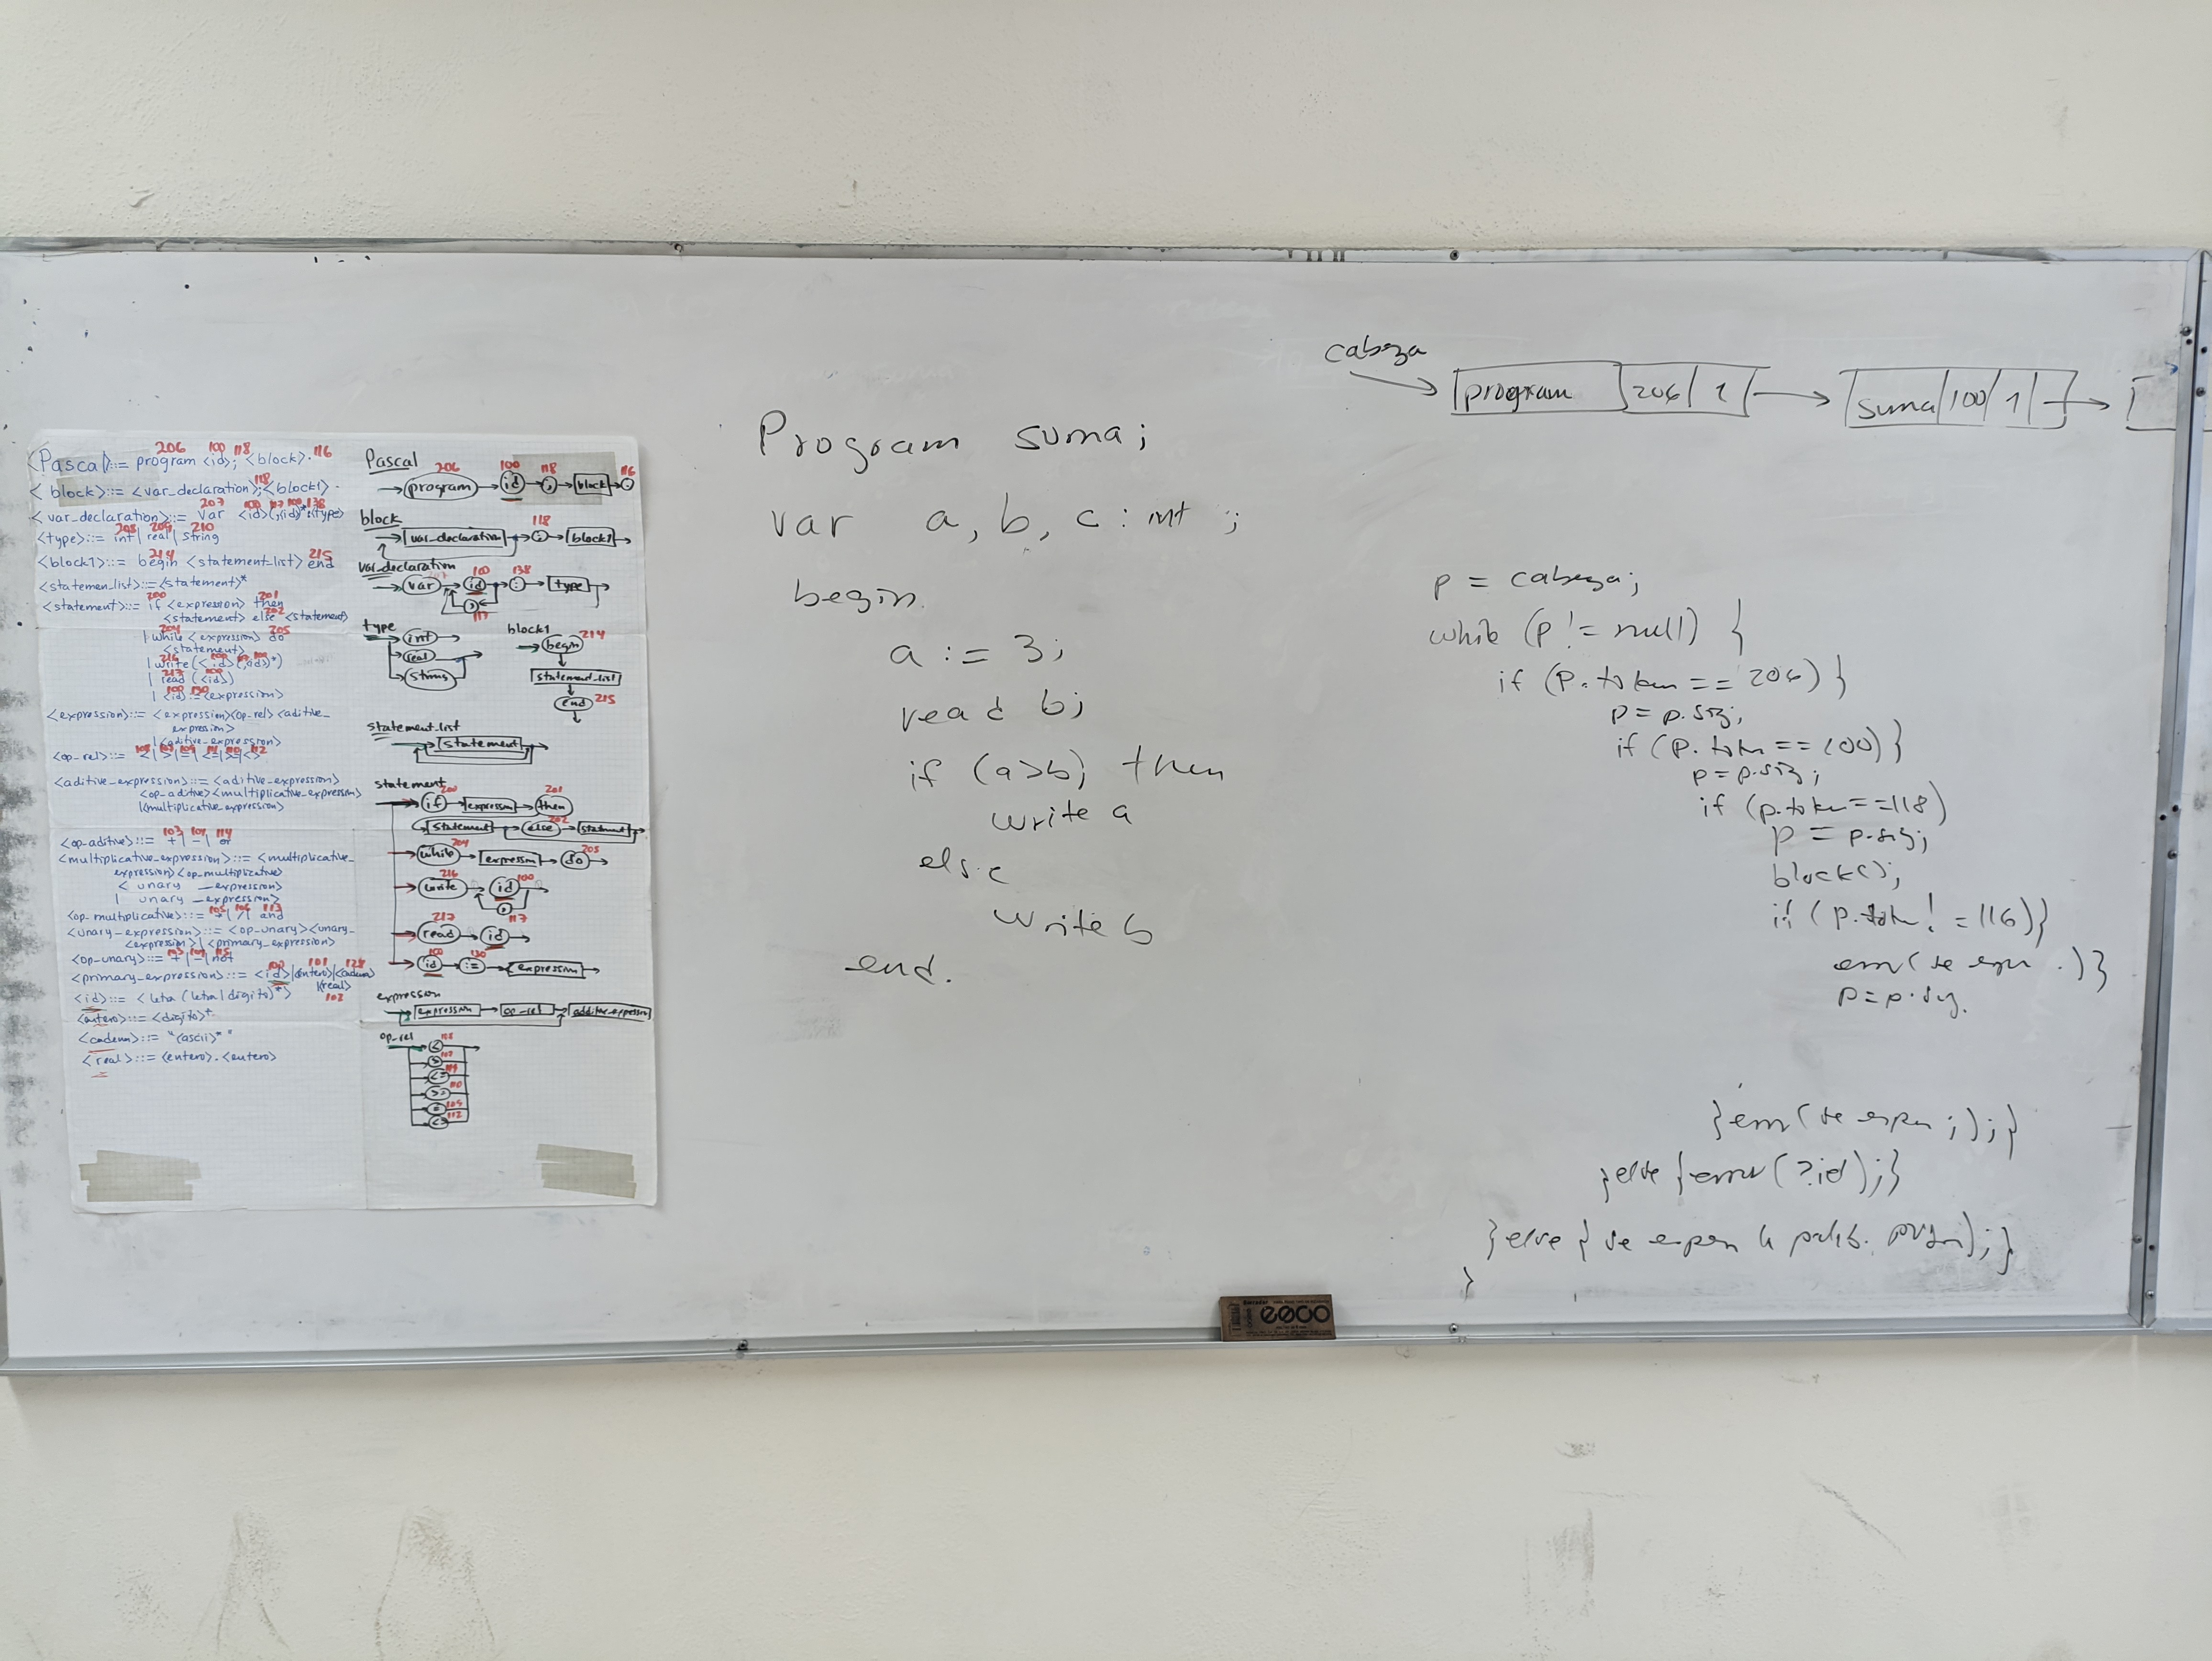 206 100 118 116
<Pascal>::= program <id>; <block>.
118
<block>::= <var_declaration>;<block1>.
207 100 117 100 138
<var_declaration>::= Var <id>(,<id>)*:<type>
208 209 210
<type>::= int| real| string
214 215
<block1>::= begin <statement_list> end
<statemen_list>::=<statement>*
200 201
<statement>::= if <expression> then
202
<statement> else <statement>
204 205
| while <expression> do
<statement>
216 100 117 100
| write(<id>(,<id>)*)
217 100
| read (<id>)
100 130
| <id>:=<expression>
<expression>::= <expression><op-rel><aditive_
expresion>
|<aditive_expression>
<op_rel>::= <|>|=|<=|>=|<>
<aditive_expression>::= <aditive_expression>
<op_aditive><multiplicative_expression>
|<multiplicative_expression>
103 104 114
<op_aditive>::= +|-| or
<multiplicative_expression>::= <multiplicative_
expression><op_multiplicative>
< unary _expression>
| unary _expression>
105 106 113
<op_multiplicative>::= *| /| and
<unary_expression>::= <op_unary><unary_
expression>|<primary_expression>
103 104 115
<op_unary>::= +|-| not
100 101
<primary_expression>::= <id>|<entero>|<cadena>
|<real>
102
<id>::= <letra (letra|digito)*>
<entero>::= <digito>+
<cadena>::= "<ascii>*"
<real>::= <entero>.<entero>
Pascal
206 100 118 116
program id ; block .
block
118
var_declaration ; block1
var_declaration
100 138
var id : type
,
117
type
int
real
string
block1
begin 214
statement_list
end 215
statement_list
statement
statement
200 201
if expression then
202
statement else statement
204 205
while expression do
216 100
write id
,
217 117
read id
100 130
id := expression
expression
expression op_rel additive_expression
op_rel
< 108
>
<=
>= 110
=
<> 112
Program suma;
var a, b, c : int ;
begin
a := 3;
read b;
if (a>b) then
write a
else
write b
end.
cabeza
program 206 1
suma 100 1
p = cabeza;
while (p != null) {
if (p.token == 206) }
p = p.sig;
if (p.token == 100) }
p = p.sig;
if (p.token ==118)
p = p.sig;
block();
if (p.token ! = 116)}
p = p.sig.
}else {error (?id);}
}